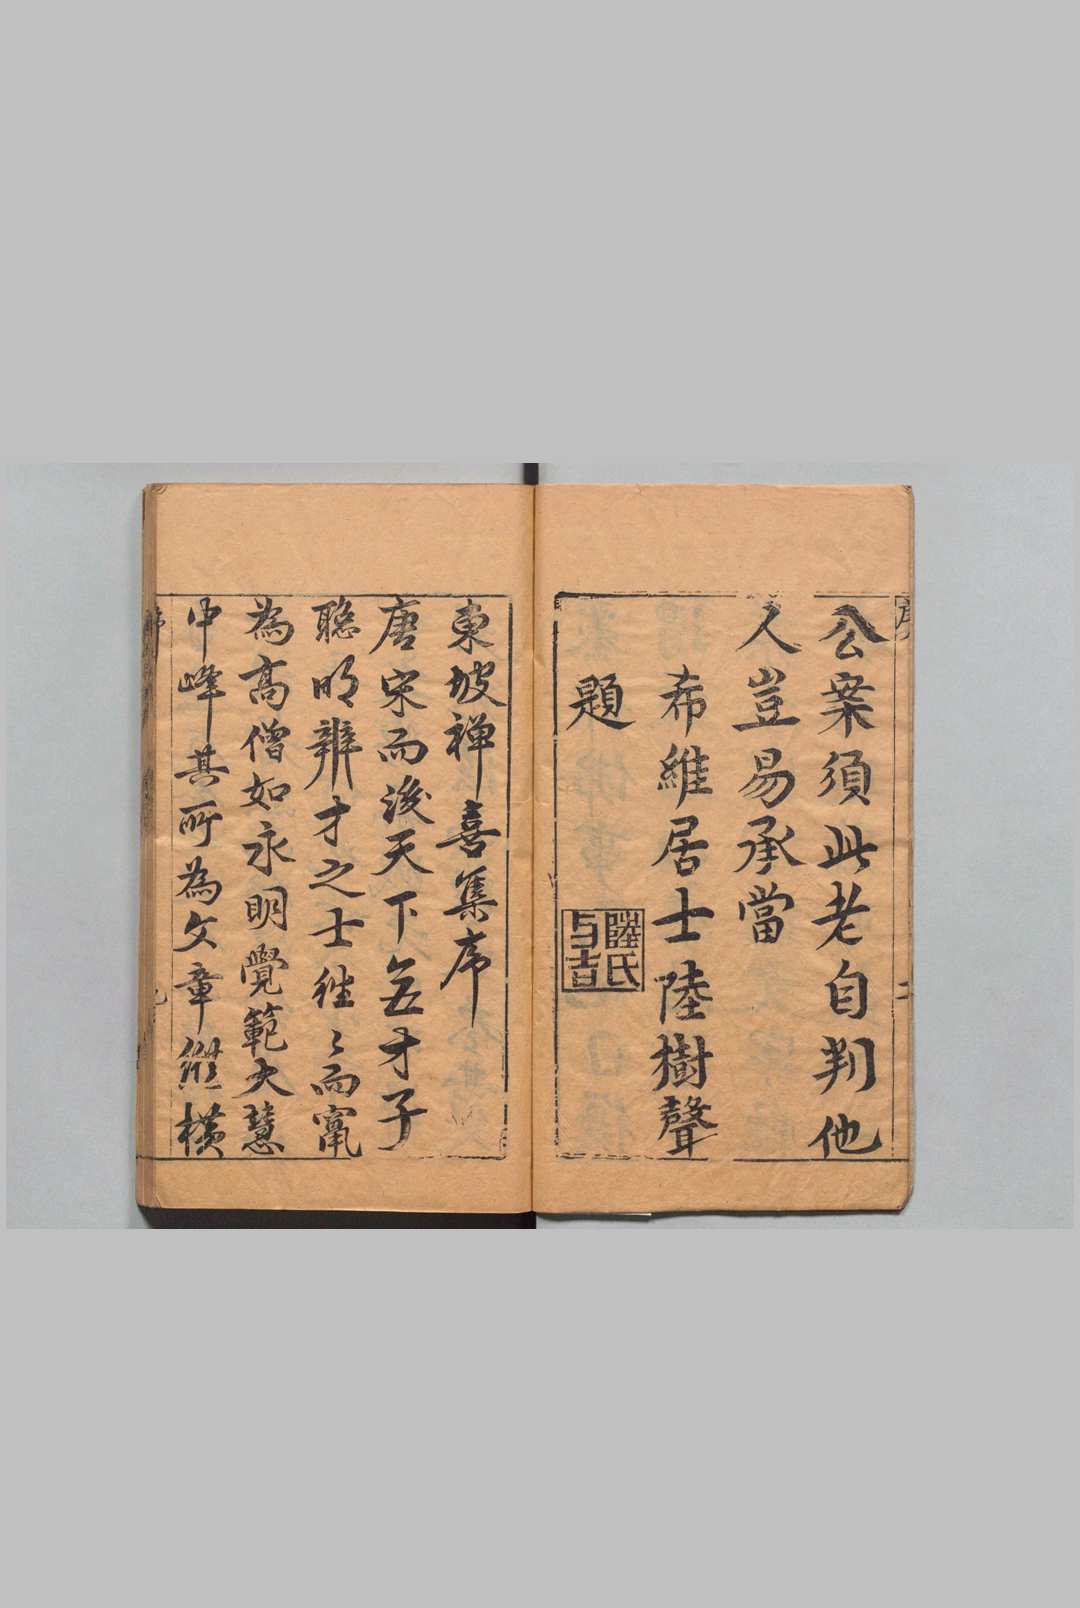 公案須此老自判他
人豈易承當
希維居士陸樹聲
題
陸氏
与吉
東坡禅喜集序
唐宋而後天下無才子
聰明辨才之士往〻而竄
為高僧如永明覺範大慧
中峰其所為文章縱橫